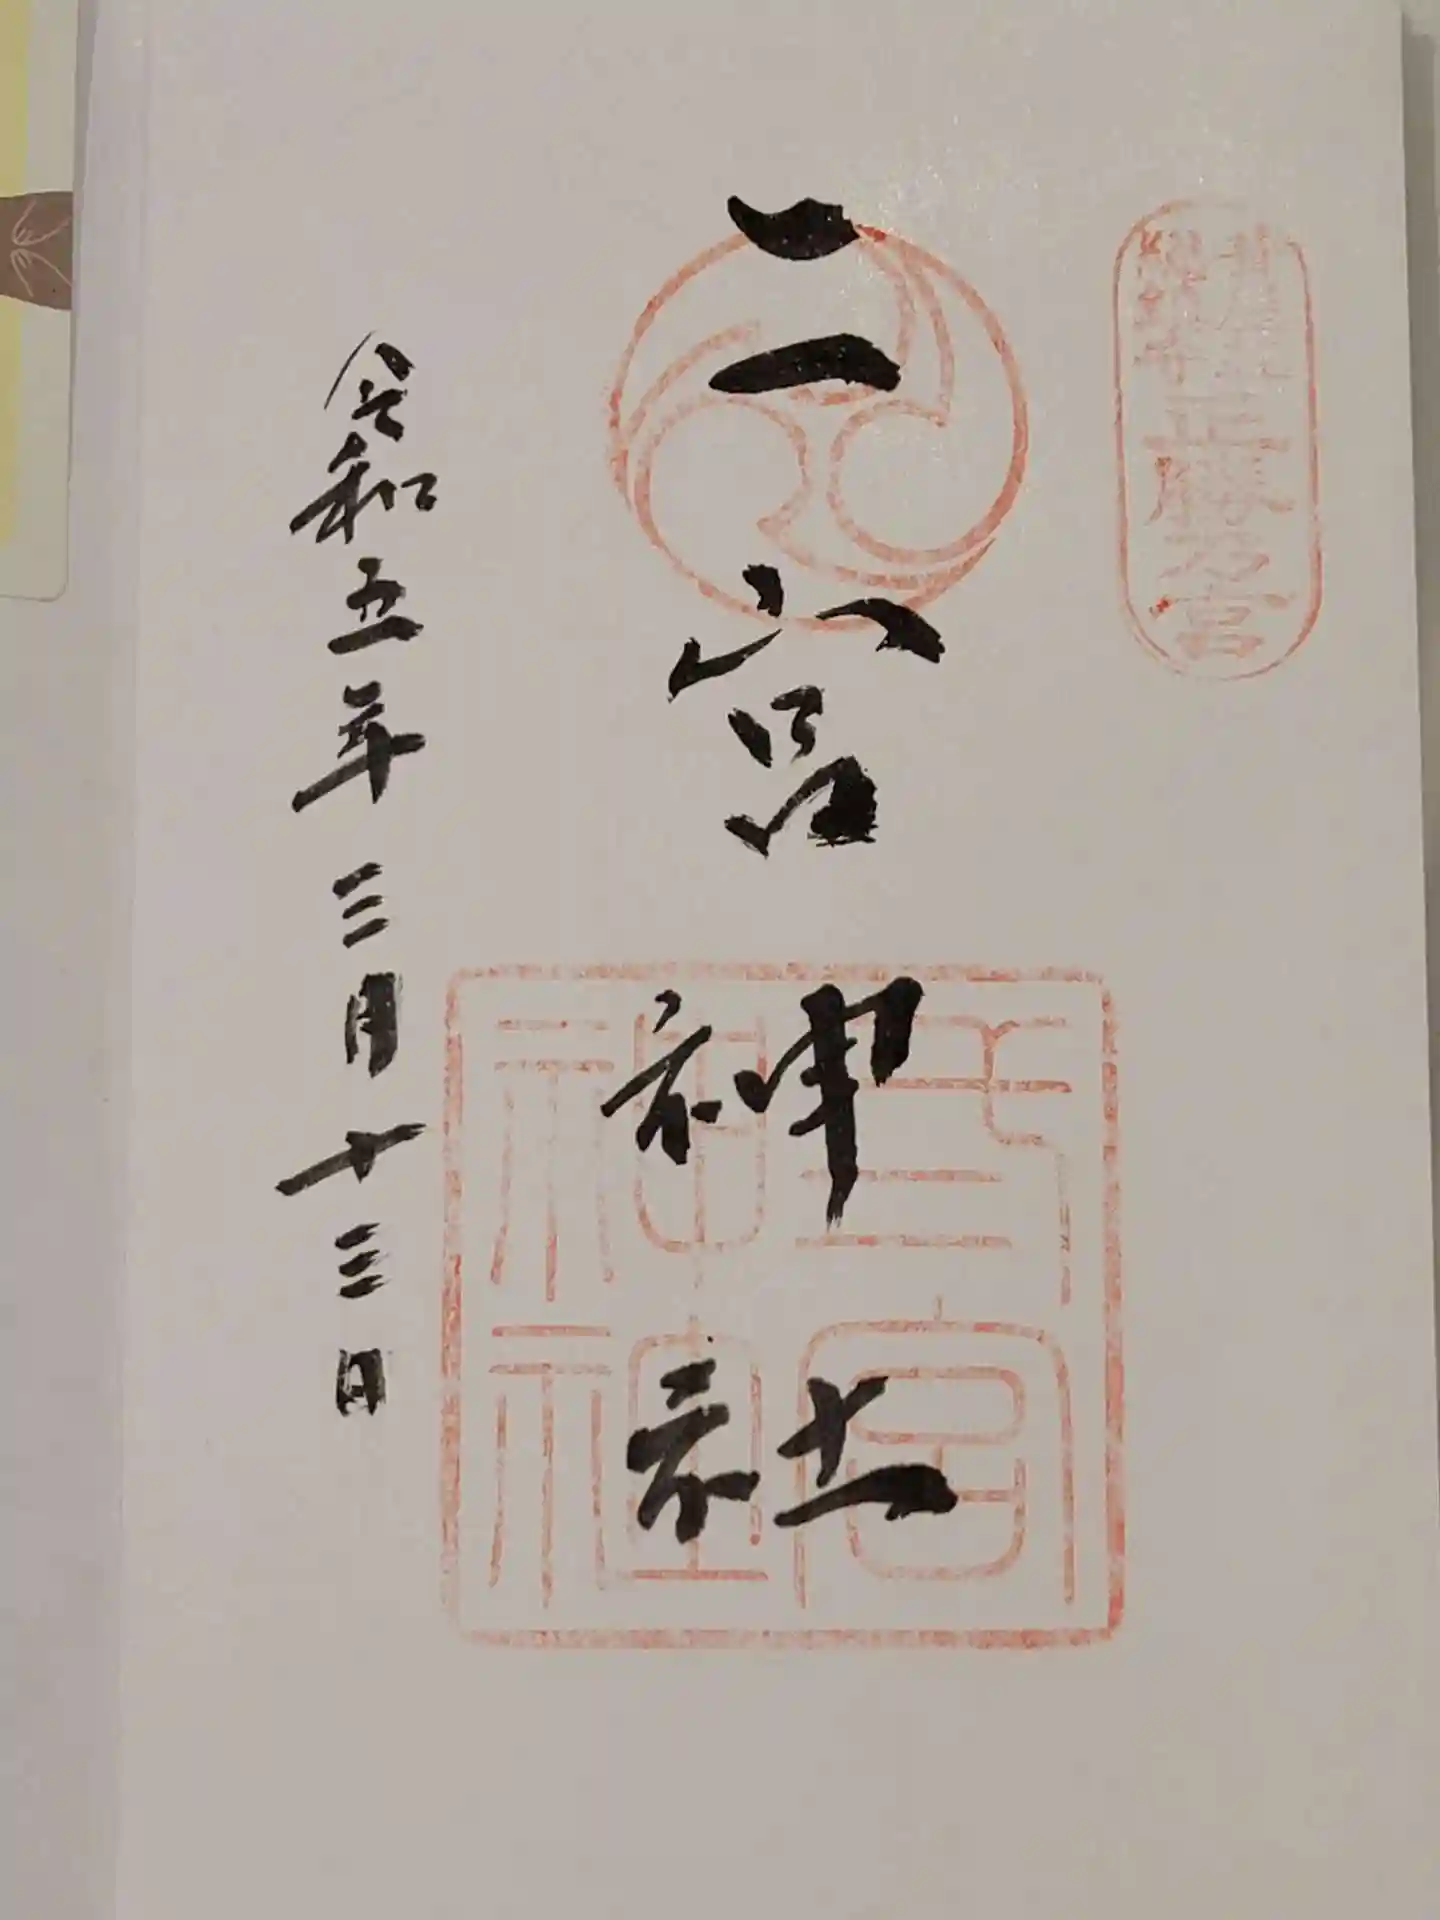 正勝乃宮
二宮神社
二宮神社
令和五年三月十三日